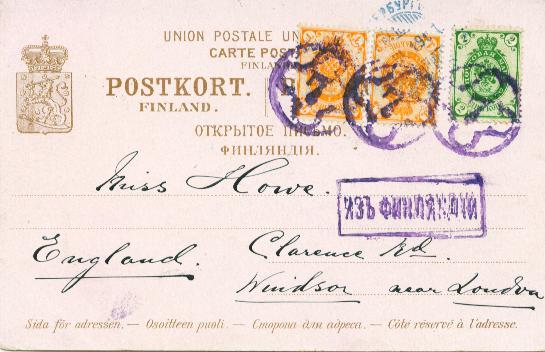 UNION POSTALE UN
CARTE POST
FINLAN
POSTKORT.
FINLAND.
ОТКРЫТОЕ ПИСЬМО.
ФИНЛЯНДІЯ.
Miss Howe.
ИЗЪ ФИНЛЯНДІИ
England. Clarence Rd.
Windsor near London
Sida för adressen. — Osoitteen puoli. — Сторона для адреса. — Côté réservé à l'adresse.